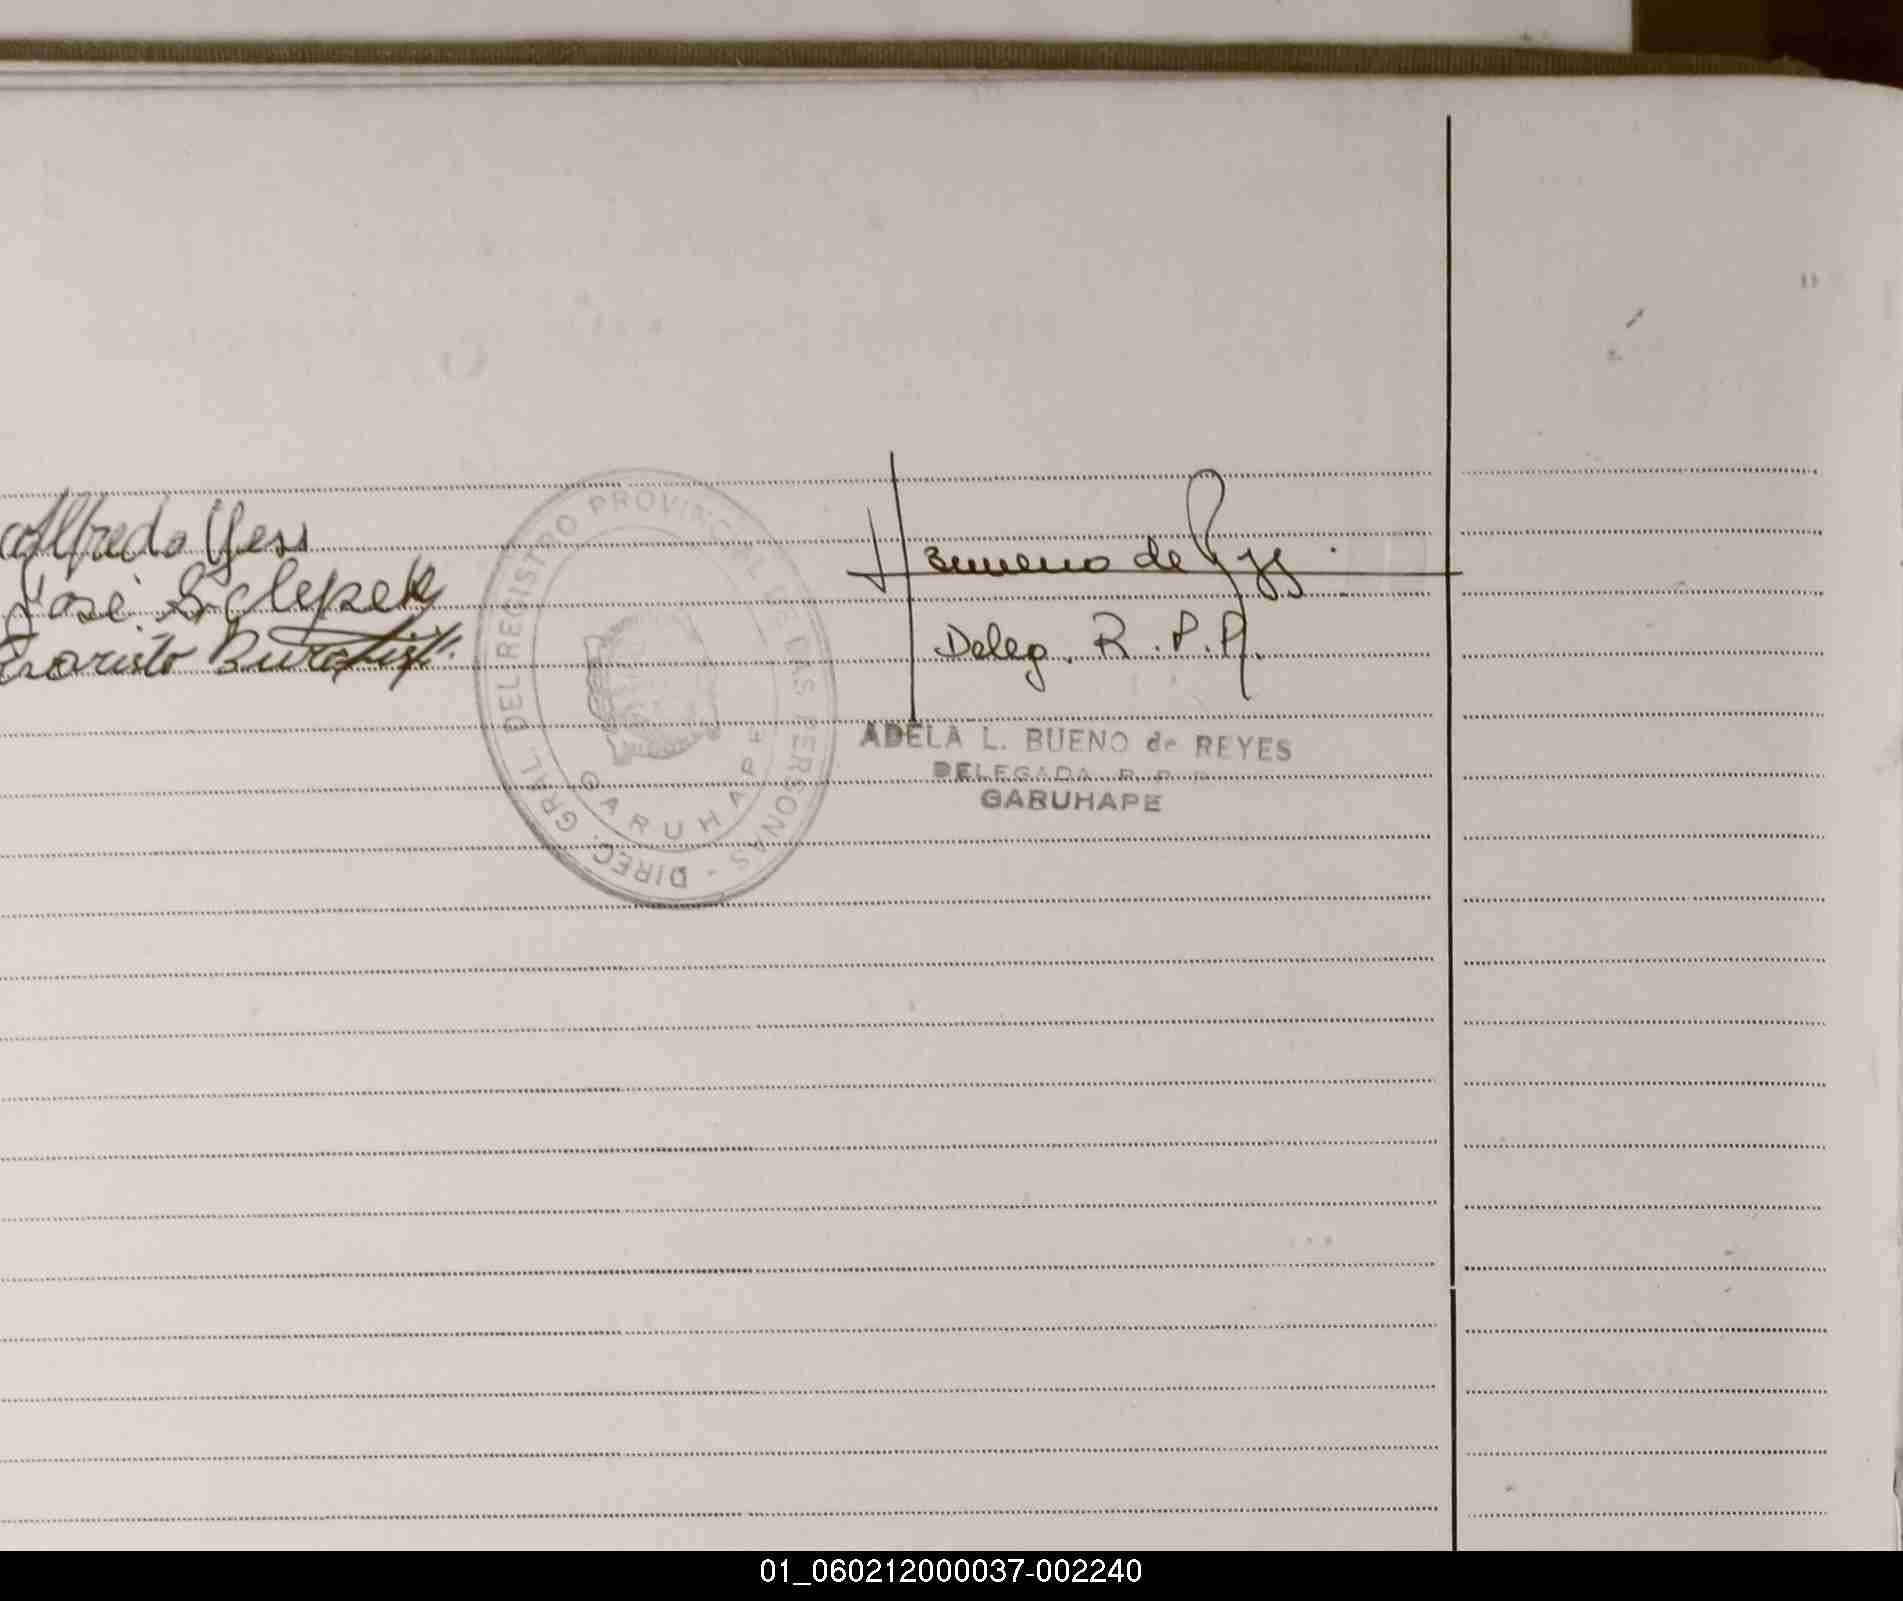 Alfredo Yess
José Sclepek
Evaristo
DIREC. GRAL. DEL REGISTRO PROVINCIAL DE LAS PERSONAS -
GARUHAPE
Bueno de Reyes
Deleg. R.P.P.
ADELA L. BUENO de REYES
DELEGADA R. P. P.
GARUHAPE
01_060212000037-002240